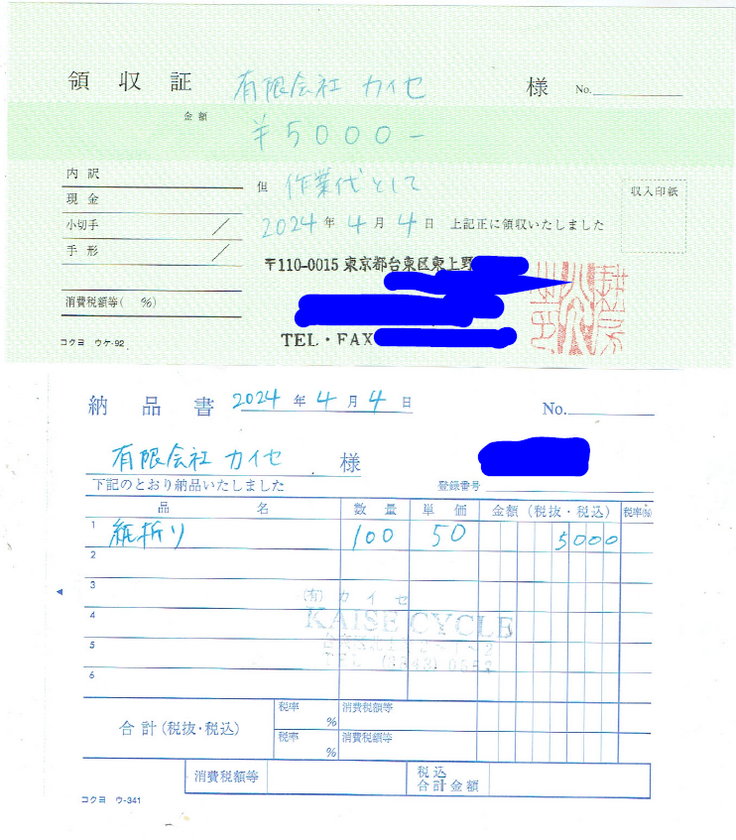 領収証 有限会社 カイセ 様 No.
金額
¥5000-
内訳
現金
小切手 /
手形 /
消費税額等( %)
コクヨ ウケ-92
但 作業代として
2024年4月4日 上記正に領収いたしました
収入印紙
〒110-0015 東京都台東区東上野
TEL・FAX
納品書 2024年4月4日 No.
有限会社 カイセ 様
下記のとおり納品いたしました
登録番号
品名 数量 単価 金額(税抜・税込) 税率(%)
1 紙折り 100 50 5000
2
3
(有) カイセ
4
KAISE CYCLE
5
6
合計(税抜・税込) 税率 % 消費税額等
税率 % 消費税額等
消費税額等 税込合計金額
コクヨ ウ-341